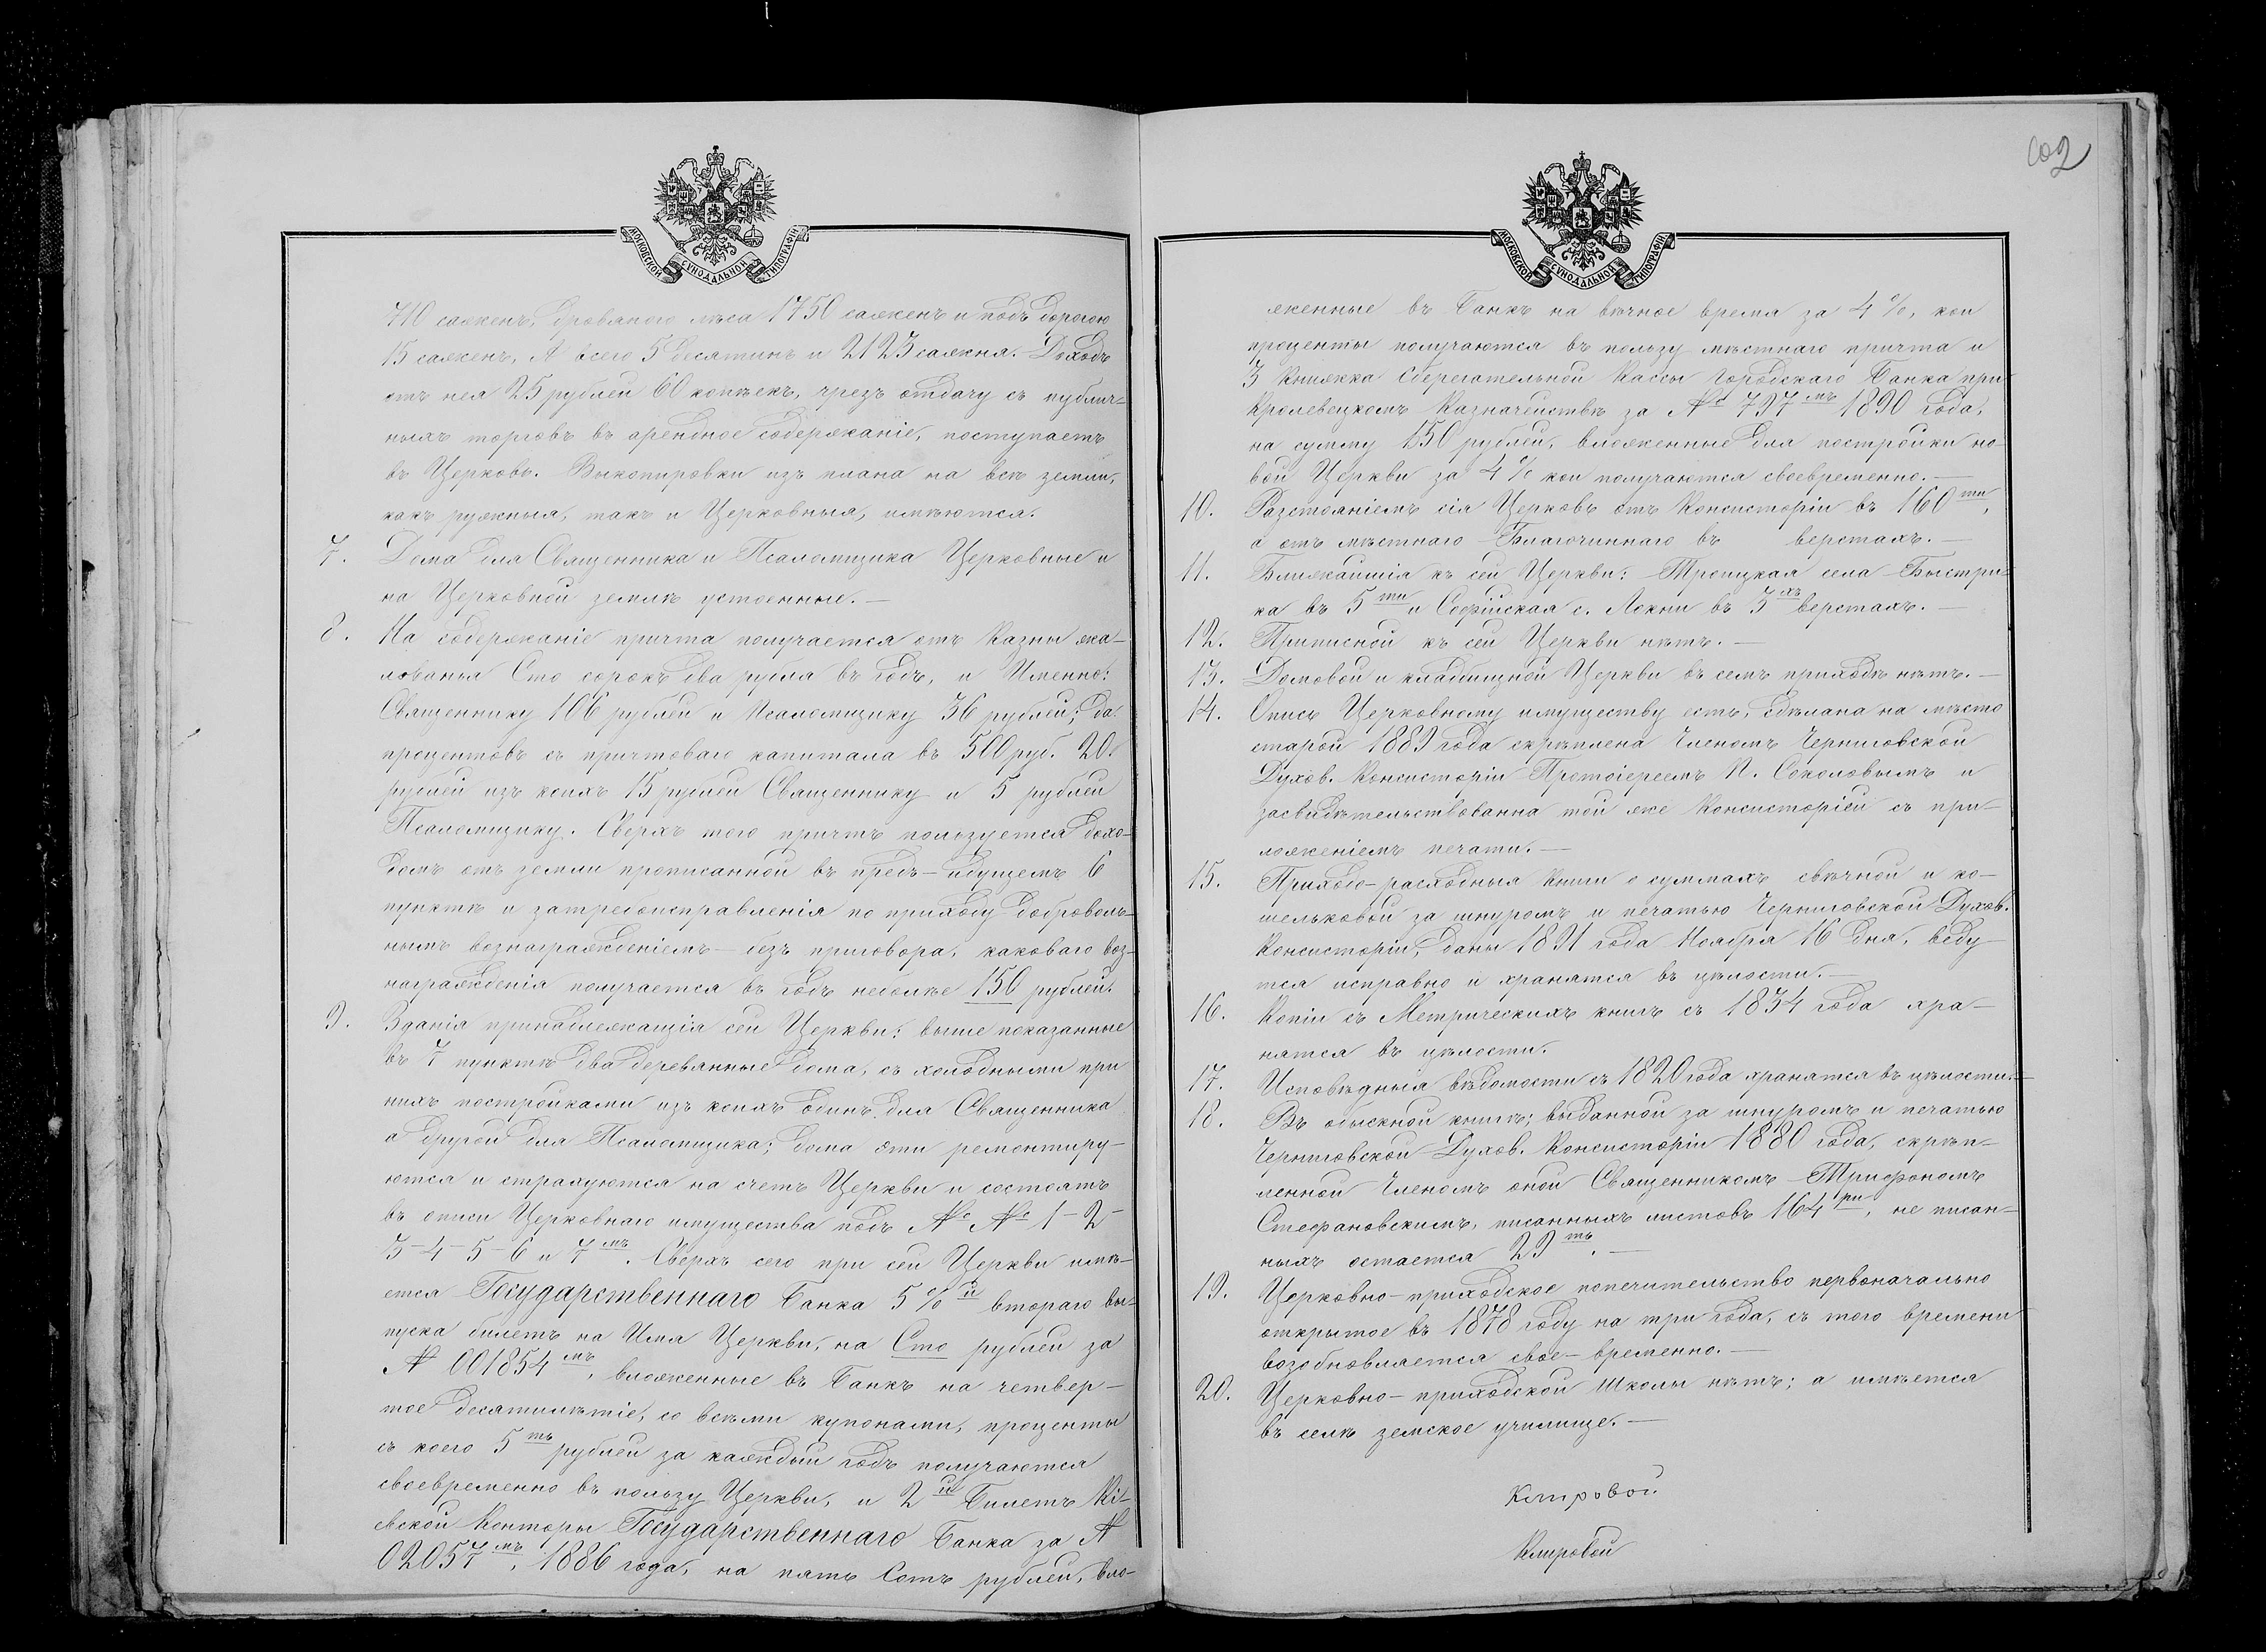 МОСКОВСКОЙ СУНОДАЛЬНОЙ ТИПОГРАФІИ
710 саженъ, дровяного лѣса 1750 саженъ и подъ дорогою
15 саженъ, А всего 5 десятинъ и 2123 сажня. Доходъ
отъ нея 25 рублей 60 копѣекъ, чрезъ отдачу съ публич-
ныхъ торговъ въ арендное содержаніе, поступаетъ
въ Церковь. Выкопировки изъ плана на всѣ земли,
какъ ружныя, такъ и Церковныя, имѣются.
7. Дома для Священника и Псаломщика Церковные и
на Церковной землѣ устоенные.—
8. На содержаніе причта получается отъ Казны жа-
лованья Сто сорокъ два рубля въ годъ, и Именно:
Священнику 106 рублей и Псаломщику 36 рублей; да
процентовъ съ причтоваго капитала въ 500 руб. 20
рублей изъ коихъ 15 рублей Священнику и 5 рублей
Псаломщику. Сверхъ того причтъ пользуется дохо-
домъ отъ земли прописанной въ предъ-идущемъ 6
пунктѣ и затребоисправленія по приходу добровольн-
нымъ вознагражденіемъ — безъ приговора, каковаго воз-
награжденія получается въ годъ неболѣе 150 рублей.
9. Зданія принадлежащія сей Церкви: выше показанные
въ 7 пунктѣ два деревянные дома, съ холодными при
нихъ постройками изъ коихъ одинъ для Священника
а другой для Псаломщика; дома эти ремонтиру-
ются и страхуются на счетъ Церкви и состоятъ
въ описи Церковнаго имущества подъ №№ 1-2-
3-4-5-6 и 7мъ. Сверхъ сего при сей Церкви имѣ-
ется Государственнаго Банка 5% й втораго вы-
пуска билетъ на Имя Церкви, на Сто рублей за
№ 001854мъ, вложенные въ Банкъ на четвер-
тое десятилѣтіе, со всѣми купонами, проценты
съ коего 5ть рублей за каждый годъ получаются
своевременно въ пользу Церкви, и 2й Билетъ Кі-
евской Конторы Государственнаго Банка за №
02057мъ, 1886 года, на пять Сотъ рублей, вло-
МОСКОВСКОЙ СУНОДАЛЬНОЙ ТИПОГРАФІИ
женные въ Банкъ на вѣчное время за 4%, кои
проценты получаются въ пользу мѣстнаго причта и
3 Книжка Сберегательной Кассы Городскаго Банка при
Кролевецкомъ Казначействѣ за № 797мъ 1890 года,
на сумму 150 рублей, вложенные для постройки но-
вой Церкви за 4% кои получаются своевременно.—
10. Разстояніемъ сія Церковь отъ Консисторіи въ 160ти,
а отъ мѣстнаго Благочиннаго въ верстахъ.—
11. Ближайшія къ сей Церкви: Троицкая села Быстри-
ка въ 5ти и Софійская с. Локни въ 3хъ верстахъ.—
12. Приписной къ сей Церкви нѣтъ.—
13. Домовой и кладбищной Церкви въ семъ приходѣ нѣтъ.—
14. Опись Церковному имуществу есть, сдѣлана на мѣсто
старой 1889 года скрѣплена Членомъ Черниговской
Духов. Консисторіи Протоіереемъ П. Соколовымъ и
засвидѣтельствованна той же Консисторіей съ при-
ложеніемъ печати.—
15. Приходо-расходныя книги о суммахъ свѣчной и ко-
шельковой за шнуромъ и печатью Черниговской Духов.
Консисторіи, даны 1891 года Ноября 16 дня, веду
тся исправно и хранятся въ цѣлости.—
16. Копіи съ Метрическихъ книгъ съ 1834 года хра-
нятся въ цѣлости.
17. Исповѣдныя вѣдомости съ 1820 года хранятся въ цѣлости.—
18. Въ обыскной книгѣ; выданной за шнуромъ и печатью
Черниговской Духов. Консисторіи 1880 года, скрѣп-
ленной Членомъ оной Священникомъ Трифономъ
Стефановскимъ, писанныхъ листовъ 164ри, не писан-
ныхъ остается 29ть.—
19. Церковно-приходское попечительство первоначально
открытое въ 1878 году на три года, съ того времени
возобновляется свое-временно.—
20. Церковно-приходской Школы нѣтъ; а имѣется
въ селѣ земское училище.—
Клировой
Клировой